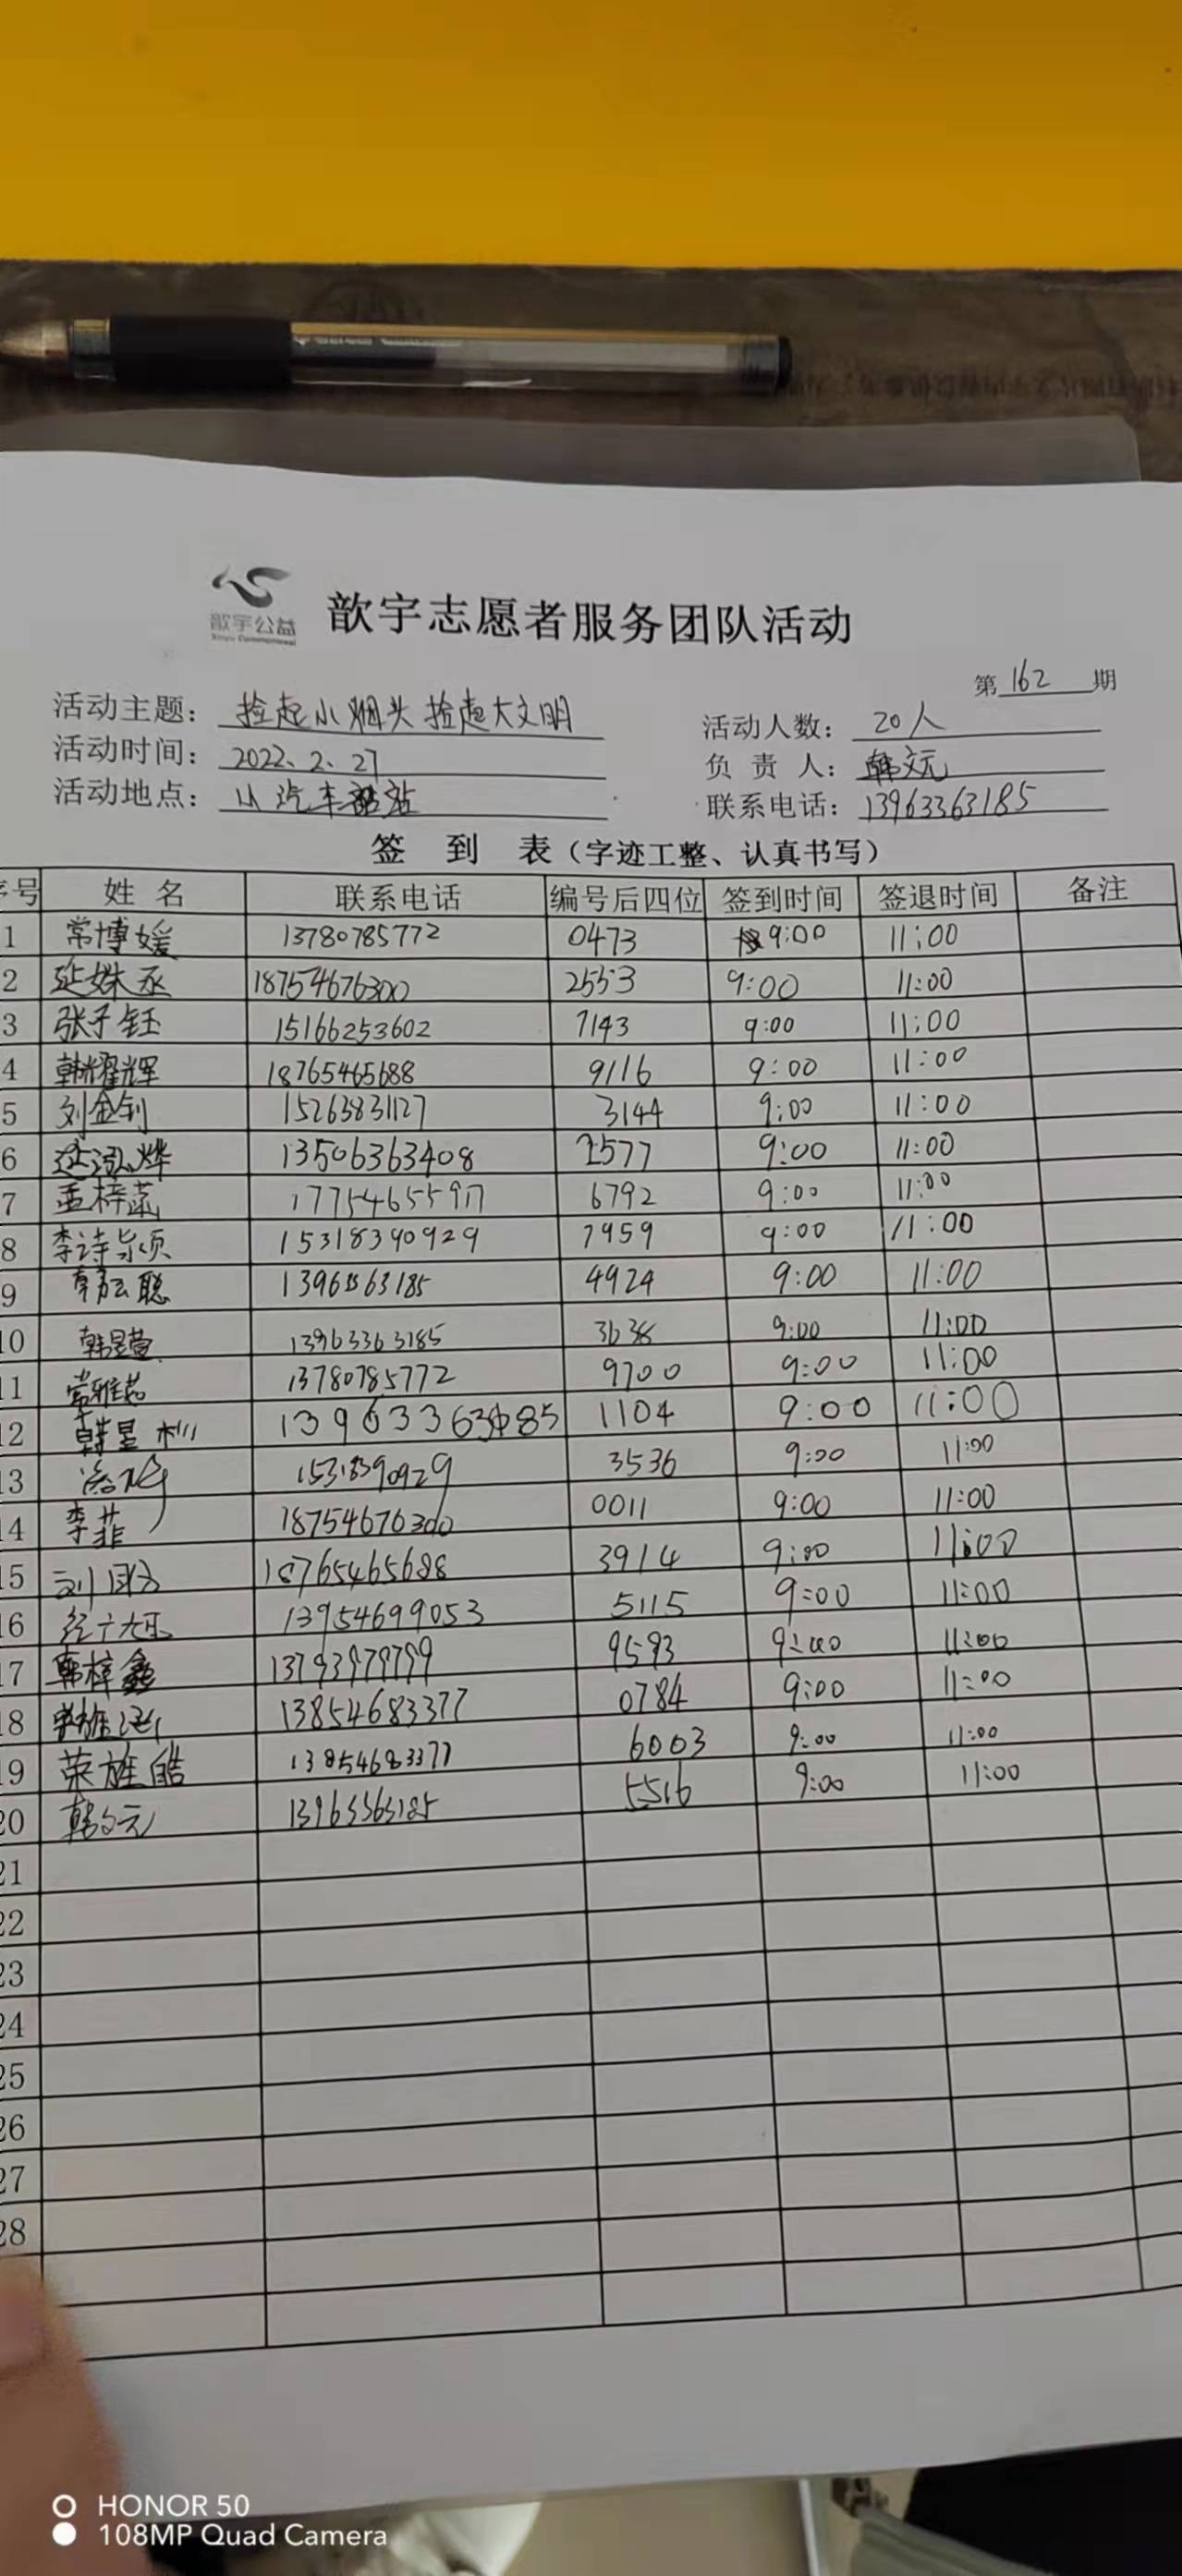 歆宇公益
歆宇志愿者服务团队活动
第 162 期
活动主题： 捡起小烟头 捡起大文明
活动人数： 20人
活动时间： 2022.2.27
负责人： 韩文元
活动地点： 汽车站
联系电话： 13963363185
签到表（字迹工整、认真书写）
序号 姓名 联系电话 编号后四位 签到时间 签退时间 备注
1 常博媛 13780785772 0473 9:00 11:00
2 延姝丞 18754676300 2553 9:00 11:00
3 张子钰 15166253602 7143 9:00 11:00
4 韩耀辉 18765465688 9116 9:00 11:00
5 刘金钊 15263831127 3144 9:00 11:00
6 延泓烨 13506363408 2577 9:00 11:00
7 孟梓萧 17754655917 6792 9:00 11:00
8 李诗颍 15318390929 7959 9:00 11:00
9 聪 13963363185 4924 9:00 11:00
10 韩昱萱 13963363185 3638 9:00 11:00
11 常雅茹 13780785772 9700 9:00 11:00
12 韩昱彬 13963363185 1104 9:00 11:00
13 15318390929 3536 9:00 11:00
14 李菲 18754676300 0011 9:00 11:00
15 刘 18765465688 3914 9:00 11:00
16 13954699053 5115 9:00 11:00
17 韩梓鑫 13793979799 9593 9:00 11:00
18 13854683377 0784 9:00 11:00
19 荣旌皓 13854683377 6003 9:00 11:00
20 韩文元 13963363185 5516 9:00 11:00
21
22
23
24
25
26
27
28
HONOR 50
108MP Quad Camera